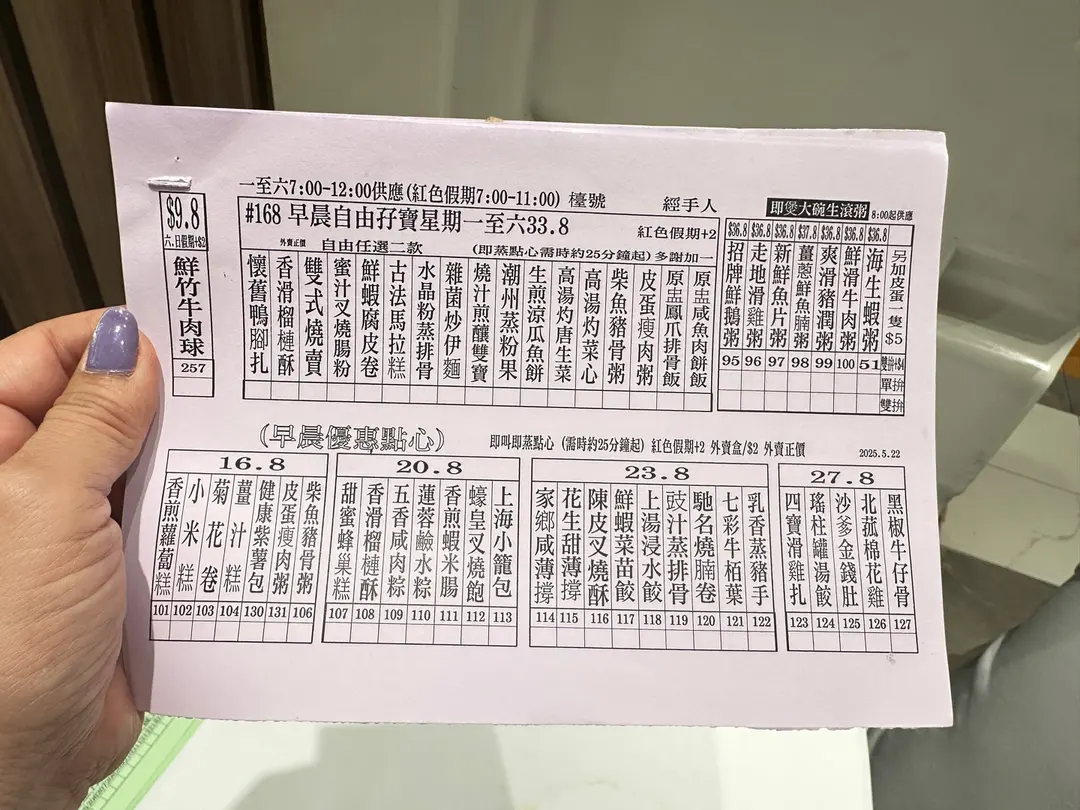 一至六7:00-12:00供應(紅色假期7:00-11:00) 檯號 經手人
$9.8
六.日假期+$2
鮮竹牛肉球
257
#168 早晨自由孖寶星期一至六33.8 紅色假期+2
外賣正價 自由任選二款 (即蒸點心需時約25分鐘起)多謝加一
懷舊鴨腳扎
香滑榴槤酥
雙式燒賣
蜜汁叉燒腸粉
鮮蝦腐皮卷
古法馬拉糕
水晶粉蒸排骨
雜菌炒伊麵
燒汁煎釀雙寶
潮州蒸粉果
生煎涼瓜魚餅
高湯灼唐生菜
高湯灼菜心
柴魚豬骨粥
皮蛋瘦肉粥
原盅鳳爪排骨飯
原盅咸魚肉餅飯
即煲大碗生滾粥 8:00起供應
$36.8 招牌鮮鵝粥 95
$36.8 走地滑雞粥 96
$36.8 新鮮魚片粥 97
$37.8 薑蔥鮮魚腩粥 98
$36.8 爽滑豬潤粥 99
$36.8 鮮滑牛肉粥 100
$36.8 海生蝦粥 51
另加皮蛋一隻$5
雙拚+$4
單拚
雙拚
(早晨優惠點心) 即叫即蒸點心 (需時約25分鐘起) 紅色假期+2 外賣盒/$2 外賣正價 2025.5.22
16.8
香煎蘿蔔糕 101
小米糕 102
菊花卷 103
薑汁糕 104
健康紫薯包 130
皮蛋瘦肉粥 131
柴魚豬骨粥 106
20.8
甜蜜蜂巢糕 107
香滑榴槤酥 108
五香咸肉粽 109
蓮蓉鹼水粽 110
香煎蝦米腸 111
蠔皇叉燒飽 112
上海小籠包 113
23.8
家鄉咸薄撐 114
花生甜薄撐 115
陳皮叉燒酥 116
鮮蝦菜苗餃 117
上湯浸水餃 118
豉汁蒸排骨 119
馳名燒腩卷 120
七彩牛栢葉 121
乳香蒸豬手 122
27.8
四寶滑雞扎 123
瑤柱罐湯餃 124
沙爹金錢肚 125
北菰棉花雞 126
黑椒牛仔骨 127